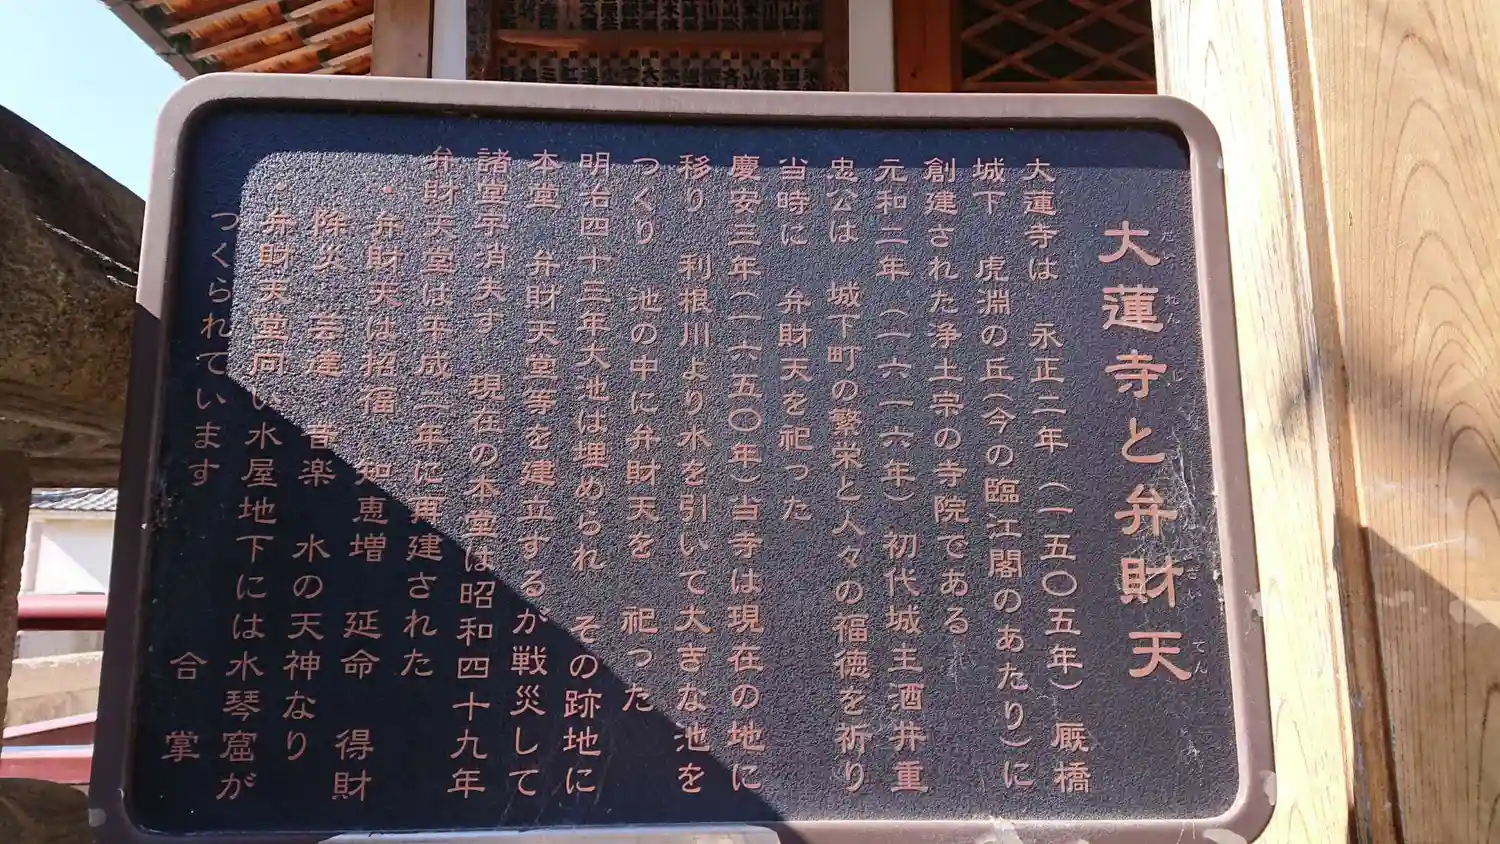 大蓮寺と弁財天
だいれんじ
ざいてん
大蓮寺は 永正二年（一五〇五年）厩橋
城下 虎淵の丘（今の臨江閣のあたり）に
創建された浄土宗の寺院である
元和二年（一六一六年）初代城主酒井重
忠公は 城下町の繁栄と人々の福徳を祈り
当時に 弁財天を祀った
慶安三年（一六五〇年）当寺は現在の地に
移り 利根川より水を引いて大きな池を
つくり 池の中に弁財天を 祀った
明治四十三年大池は埋められ その跡地に
本堂 弁財天堂等を建立するが戦災して
諸堂宇消失す 現在の本堂は昭和四十九年
弁財天堂は平成一年に再建された
・弁財天は招福 知恵増 延命 得財
降災 芸達 音楽 水の天神なり
・弁財天堂向い水屋地下には水琴窟が
つくられています
合掌